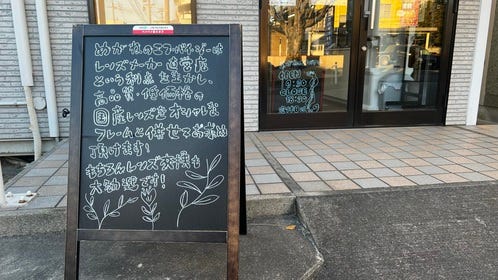 めがねのコアバイザーは
レンズメーカー直営店
という利点を生かし、
高品質・低価格の
国産レンズをオリジナル
フレームと併せてお求め
頂けます!
もちろんレンズ交換も
大歓迎です!
OPEN
9:30
CLOSE
18:30